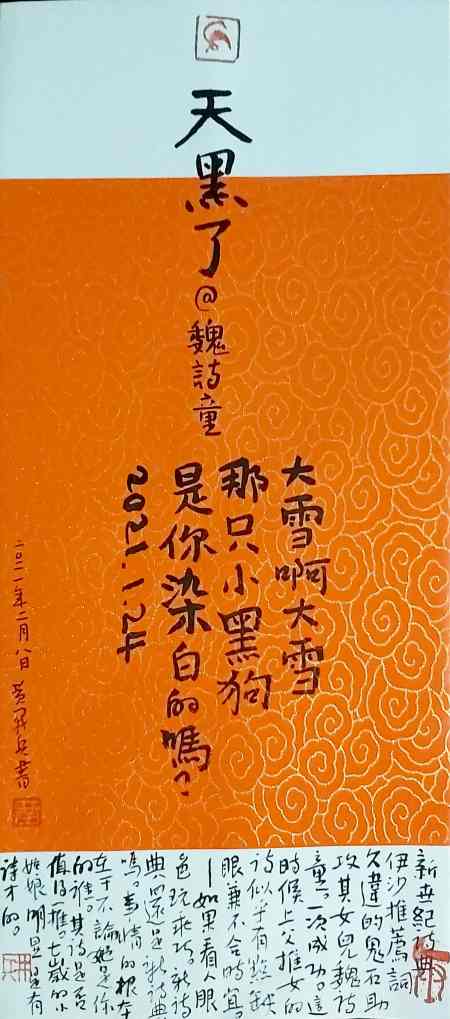 天黑了
@魏詩童
大雪啊大雪
那只小黑狗
是你染白的嗎?
2021.1.24
二〇二一年二月八日 黄开兵書
新世紀詩典
伊沙推薦詞
久違的鬼石助
攻其女兒魏詩
童。一次成功。這
時候上父推女的
詩似乎有點缺
眼兼不合時宜。
—如果看人眼
色玩乖巧。新詩
典還是新詩典
嗎。事情的根本
在于不論她是你
的誰。其詩是否
值得一推。七歲的小
姑娘明显是有
詩才的。